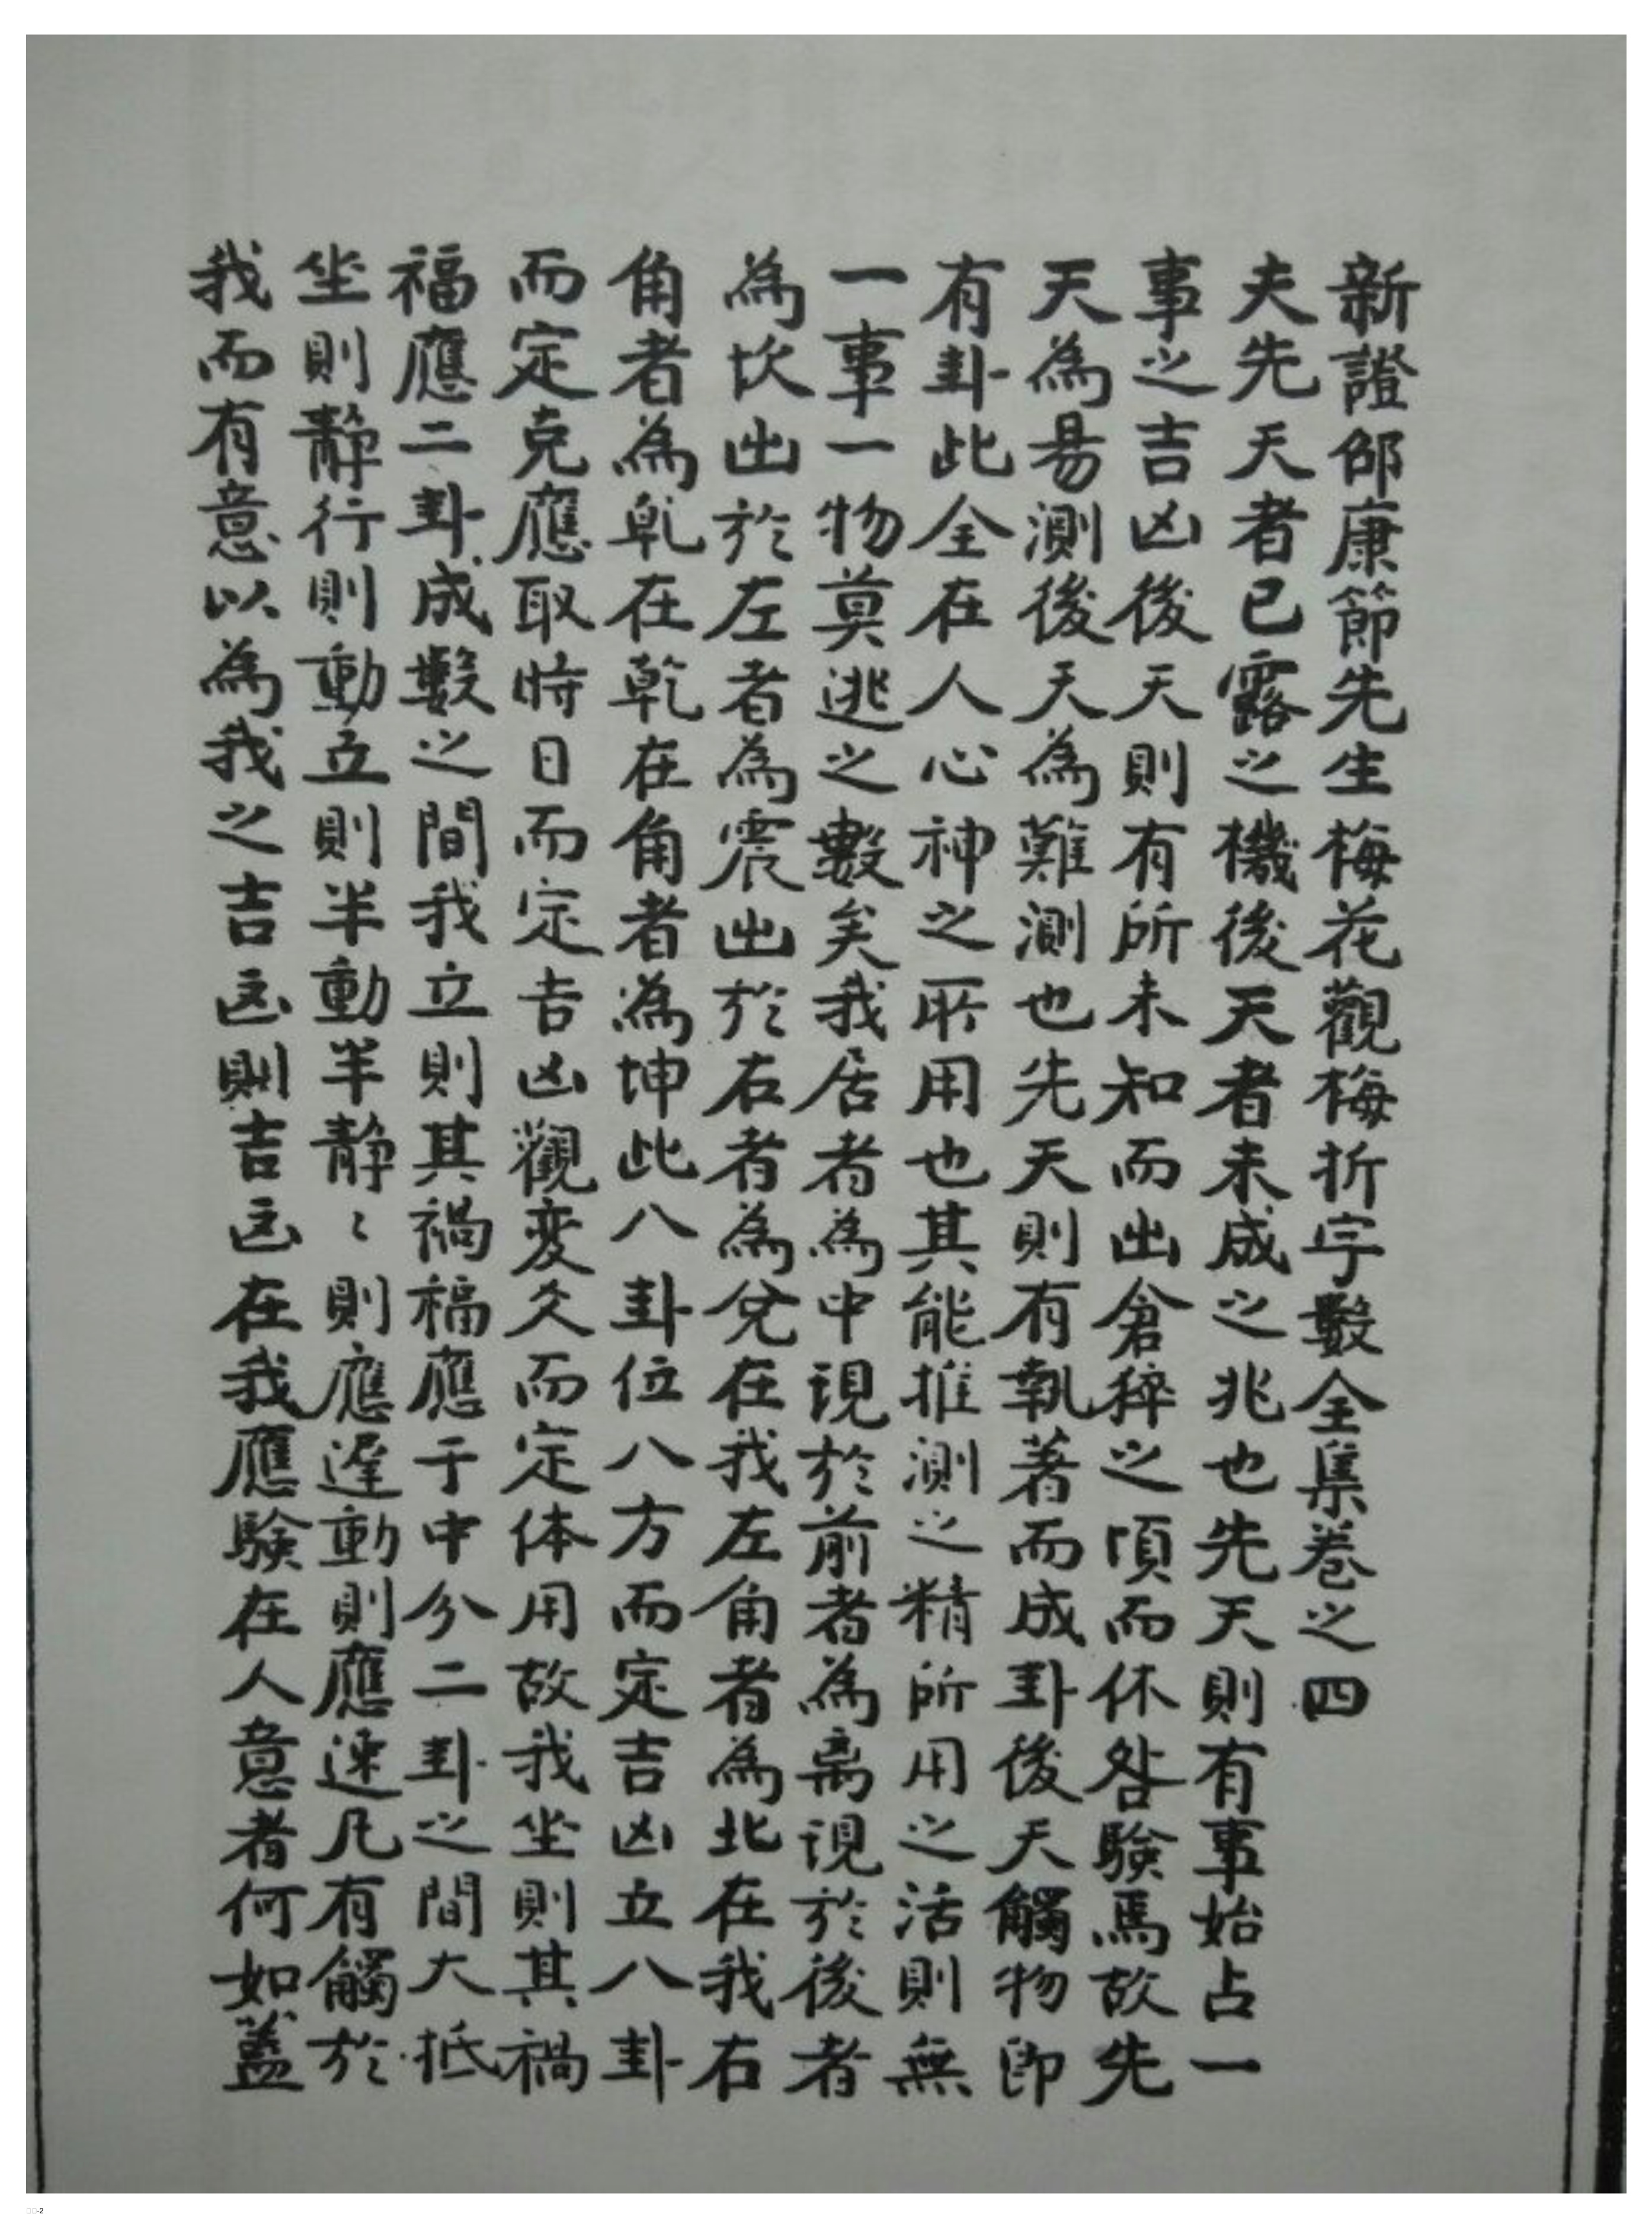 新證邵康節先生梅花觀梅折字數全集卷之四
夫先天者已露之機後天者未成之兆也先天則有事始占一
事之吉凶後天則有所未知而出倉猝之頃而休咎驗焉故先
天為易測後天為難測也先天則有執著而成卦後天觸物即
有卦此全在人心神之所用也其能推測之精所用之活則無
一事一物莫逃之數矣我居者為中現於前者為离現於後者
為坎出於左者為震出於右者為兌在我左角者為北在我右
角者為乹在乾在角者為坤此八卦位八方而定吉凶立八卦
而定克應取時日而定吉凶觀変爻而定体用故我坐則其禍
福應二卦成數之間我立則其禍福應于中分二卦之間大抵
坐則靜行則動立則半動半靜〻則應遲動則應速凡有觸於
我而有意以為我之吉凶則吉凶在我應驗在人意者何如蓋
-2